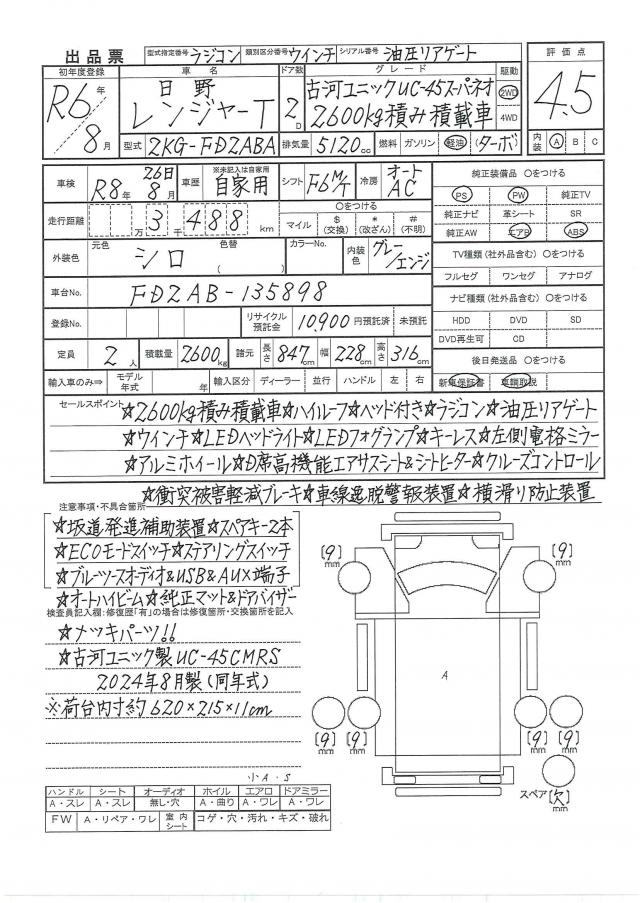 出品票
型式指定番号 ラジコン 類別区分番号 ウインチ シリアル番号 油圧リアゲート
初年度登録 R6年 8月
車名 日野 レンジャーT
ドア数 2D
グレード 古河ユニックUC-45スーパネオ 2600kg積み積載車
駆動 2WD 4WD
評価点 4.5
型式 2KG-FD2ABA 排気量 5120cc 燃料 ガソリン 軽油 (ターボ)
内装 A B C
車検 R8年 8月 26日
車歴 ※未記入は自家用 自家用
シフト F6M/T 冷房 オートAC
走行距離 万 3千 488 km
○をつける
マイル $(交換) *(改ざん) #(不明)
外装色 元色 シロ 色替 ( ) カラーNo. 内装色 グレー/エンジ
車台No. FD2AB-135898
登録No. リサイクル預託金 10,900円預託済 未預託
定員 2人 積載量 2600kg 諸元 長さ 847cm 幅 228cm 高さ 316cm
輸入車のみ⇒ モデル年式 年 輸入区分 ディーラー 並行 ハンドル 左 右
純正装備品 ○をつける
PS PW 純正TV
純正ナビ 革シート SR
純正AW エアB ABS
TV種類(社外品含む) ○をつける
フルセグ ワンセグ アナログ
ナビ種類(社外品含む) ○をつける
HDD DVD SD
DVD再生可 CD
後日発送品 ○をつける
新車保証書 車輌取説
セールスポイント ☆2600kg積み積載車☆ハイルーフ☆ベッド付き☆ラジコン☆油圧リアゲート
☆ウインチ☆LEDヘッドライト☆LEDフォグランプ☆キーレス☆左側電格ミラー
☆アルミホイール☆D席高機能エアサスシート&シートヒーター☆クルーズコントロール
☆衝突被害軽減ブレーキ☆車線逸脱警報装置☆横滑り防止装置
注意事項・不具合箇所
☆坂道発進補助装置☆スペアキー2本
☆ECOモードスイッチ☆ステアリングスイッチ
☆ブルーツースオーディオ&USB&AUX端子
☆オートハイビーム☆純正マット&ドアバイザー
検査員記入欄:修復歴「有」の場合は修復箇所・交換箇所を記入
☆メッキパーツ!!
☆古河ユニック製UC-45CMRS
2024年8月製(同年式)
※荷台内寸約620×215×11cm
小A・S
[9]mm [9]mm
A
[9]mm [9]mm [9]mm [9]mm
スペア[欠]mm
ハンドル シート オーディオ ホイル エアロ ドアミラー
A・スレ A・スレ 無し・穴 A・曲り A・ワレ A・ワレ
FW A・リペア・ワレ 室内シート コゲ・穴・汚れ・キズ・破れ